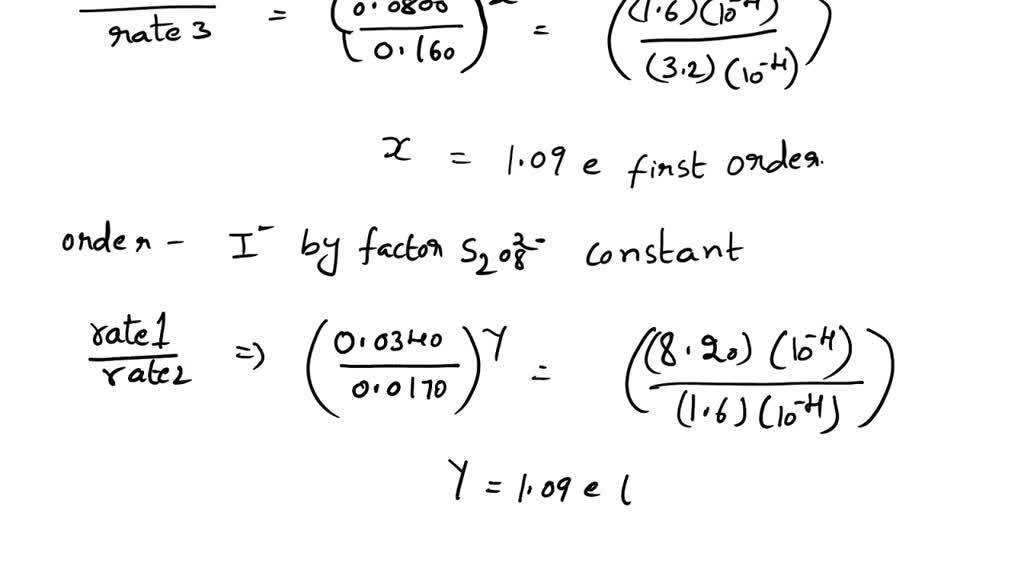 rate 3 = (0.0800 / 0.160) = ((1.6)(10⁻⁴) / (3.2)(10⁻⁴))
x = 1.09 e first order.
order - I⁻ by factor S₂O₈²⁻ constant
rate1 / rate2 => (0.0340 / 0.0170)^Y = ((8.20)(10⁻⁴) / (1.6)(10⁻⁴))
Y = 1.09 e (